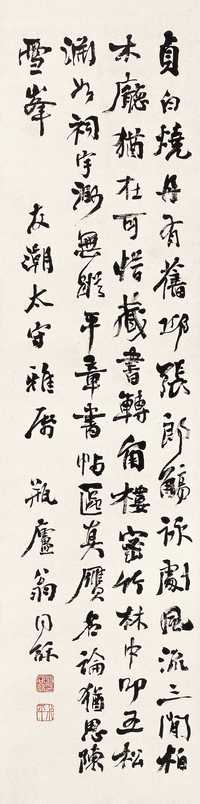 貞白燒丹有舊邱張郎觴詠劇風流三間柏
木廳猶在可惜藏書轉角樓密竹林中叩五松
淵如祠宇渺無蹤平章書帖區真贋名論猶思陳
雪峯 友潮太守雅屬 瓶廬翁同龢